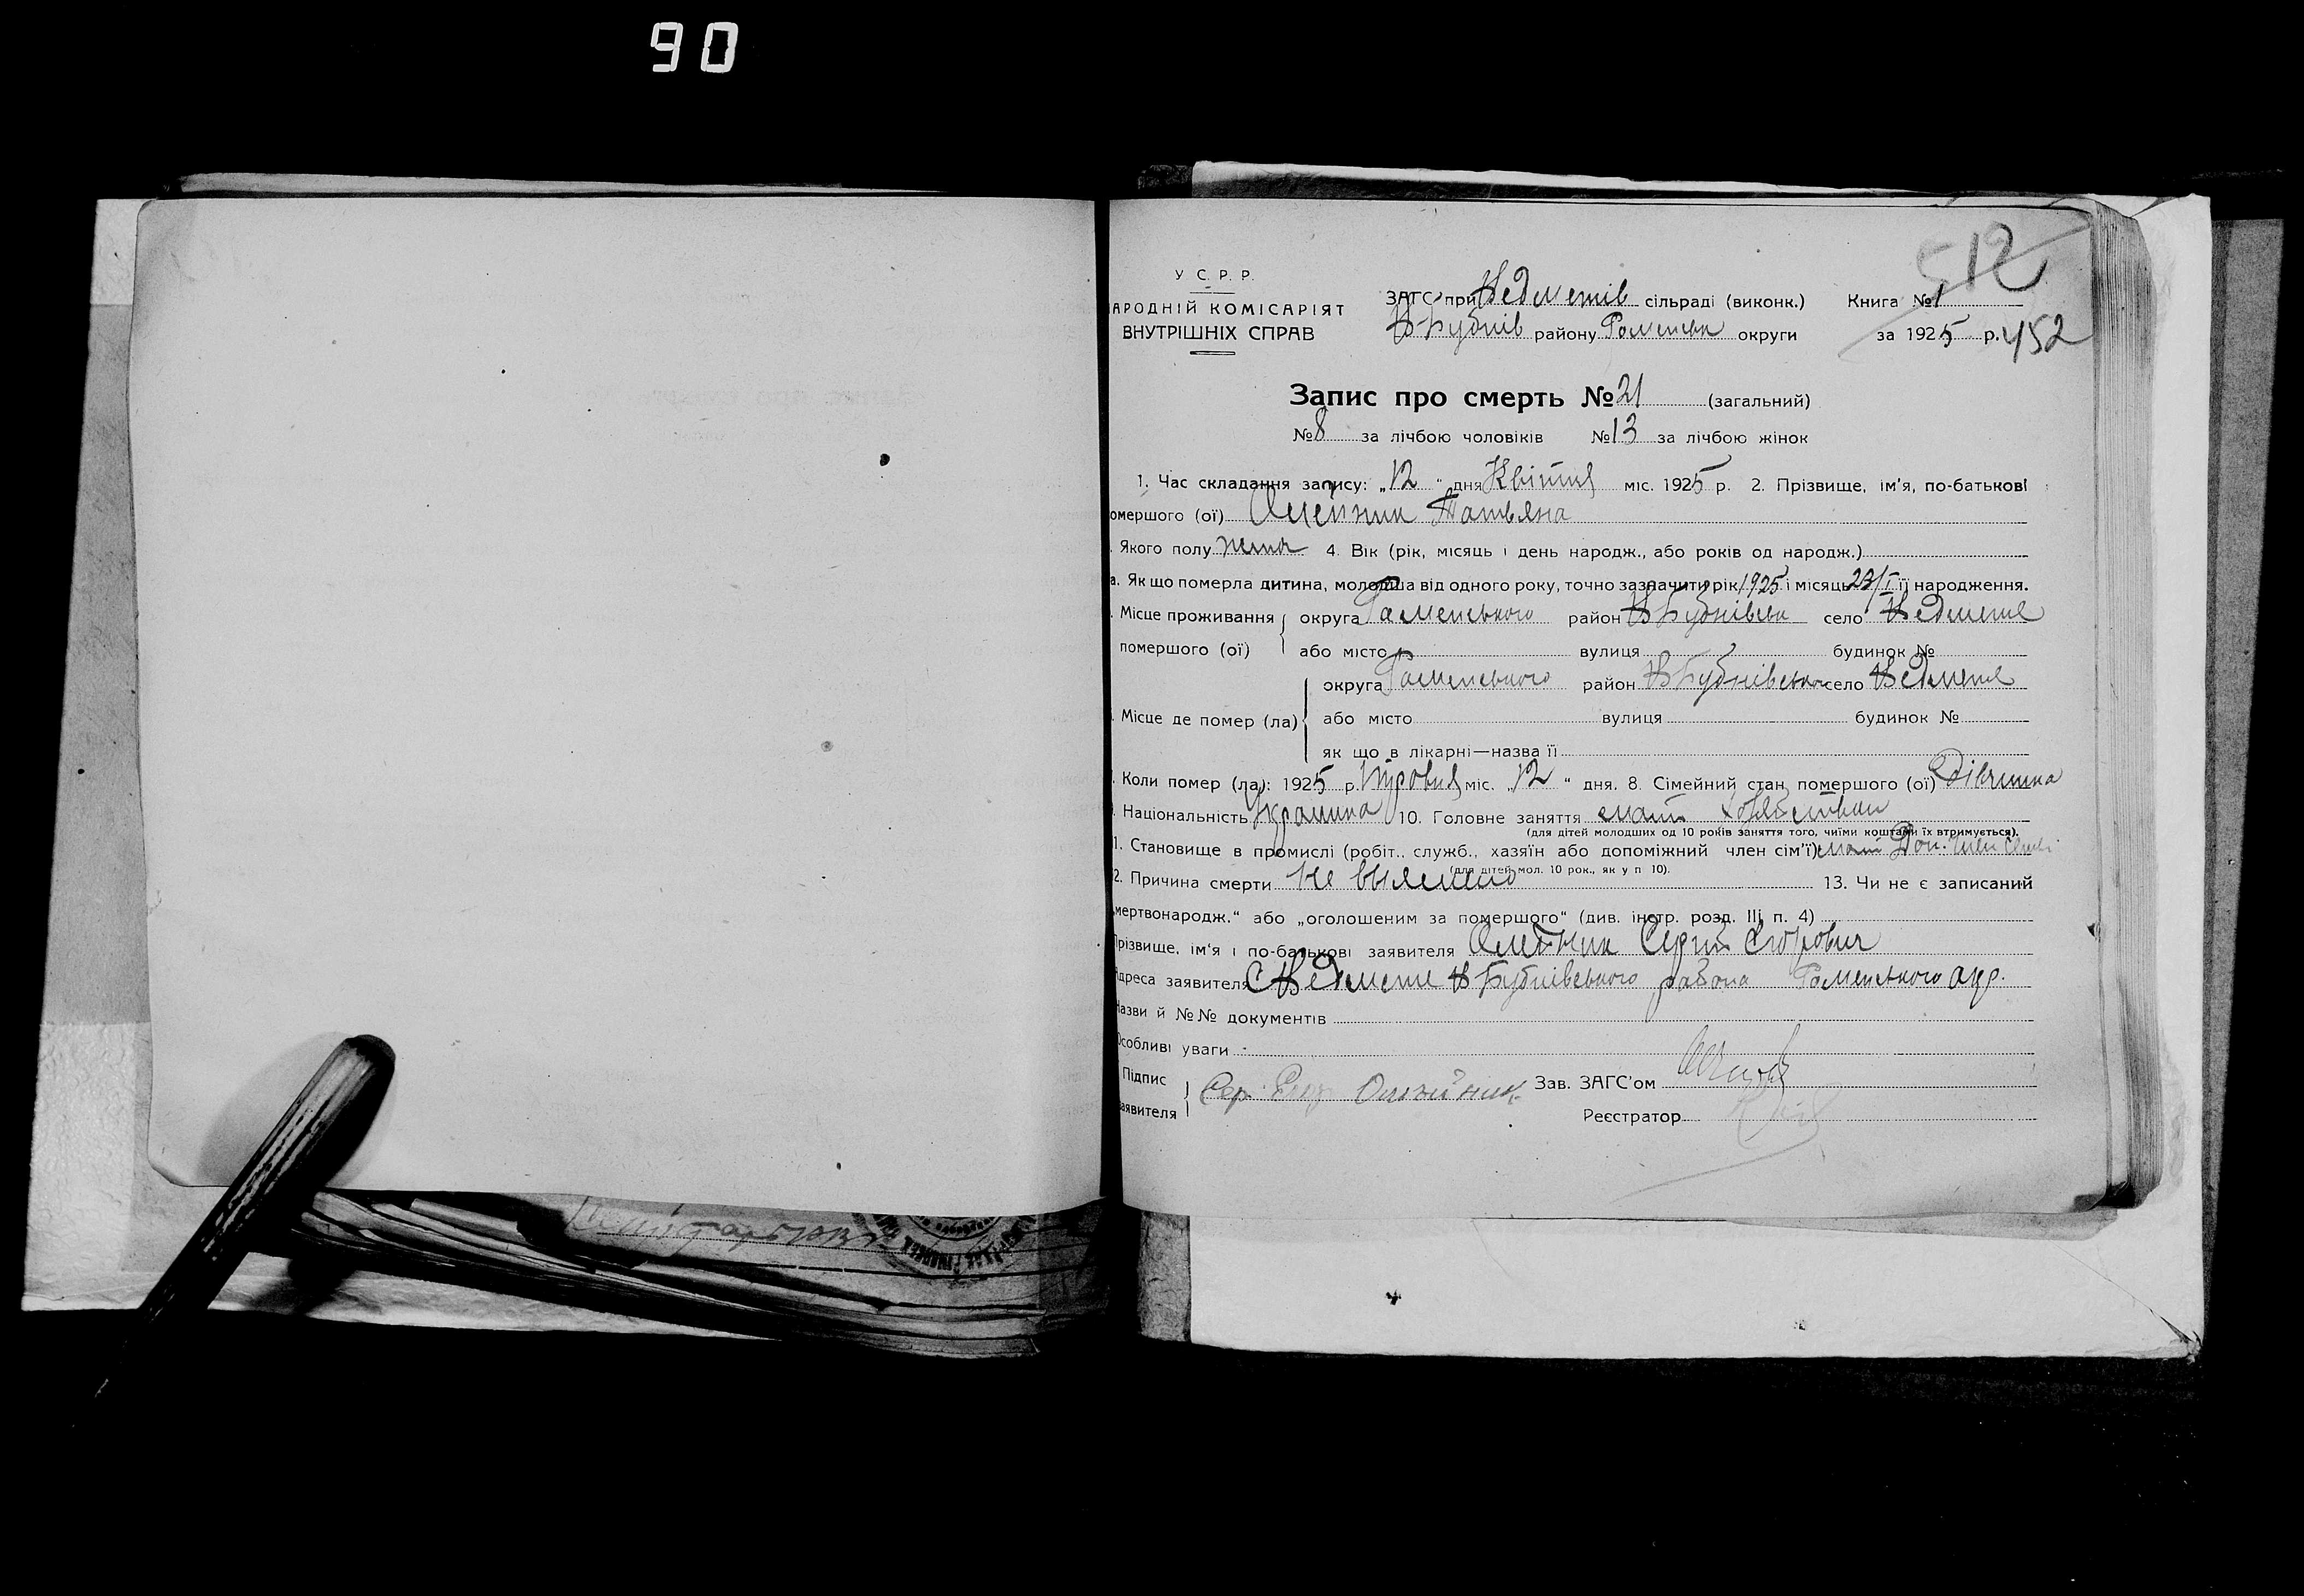 90
512
У С. Р. Р.
АРОДНІЙ КОМІСАРІЯТ
ВНУТРІШНІХ СПРАВ
ЗАГС при Недметів сільраді (виконк.) Книга № 1
району Роменська округи за 1925 р. 452
Запис про смерть № 21 (загальний)
№ 8 за лічбою чоловіків № 13 за лічбою жінок
1. Час складання запису: „12“ дня Квітня міс. 1925 р. 2. Прізвище, ім'я, по-батькові
омершого (ої) Олейник Татьяна
. Якого полу жіноч 4. Вік (рік, місяць і день народж., або років од народж.)
а. Як що померла дитина, молодша від одного року, точно зазначити рік 1925 і місяць 23/I її народження.
. Місце проживання округа Роменського район Н Бубнівськ село Недмете
помершого (ої) або місто вулиця будинок №
округа Роменського район Н Бубнівськ село Недмете
. Місце де помер (ла) або місто вулиця будинок №
як що в лікарні—назва її
. Коли помер (ла): 1925 р. міс. „12“ дня. 8. Сімейний стан помершого (ої) Дівчина
. Національність Украинка 10. Головне заняття мати
(для дітей молодших од 10 років заняття того, чиїми коштами їх втримується).
1. Становище в промислі (робіт., служб., хазяїн або допоміжний член сім'ї) мати Доп. член
(для дітей мол. 10 рок., як у п 10).
2. Причина смерти не выяснено 13. Чи не є записаний
мертвонародж.“ або „оголошеним за помершого“ (див. інстр. розд. III п. 4)
Прізвище, ім'я і по-батькові заявителя Олейник Сергій Егорович
Адреса заявителя С Недмете Н Бубнівського района Роменського окр.
Назви й №№ документів
Особливі уваги
Підпис
заявителя Сер. Егор Олейник Зав. ЗАГС'ом
Реєстратор